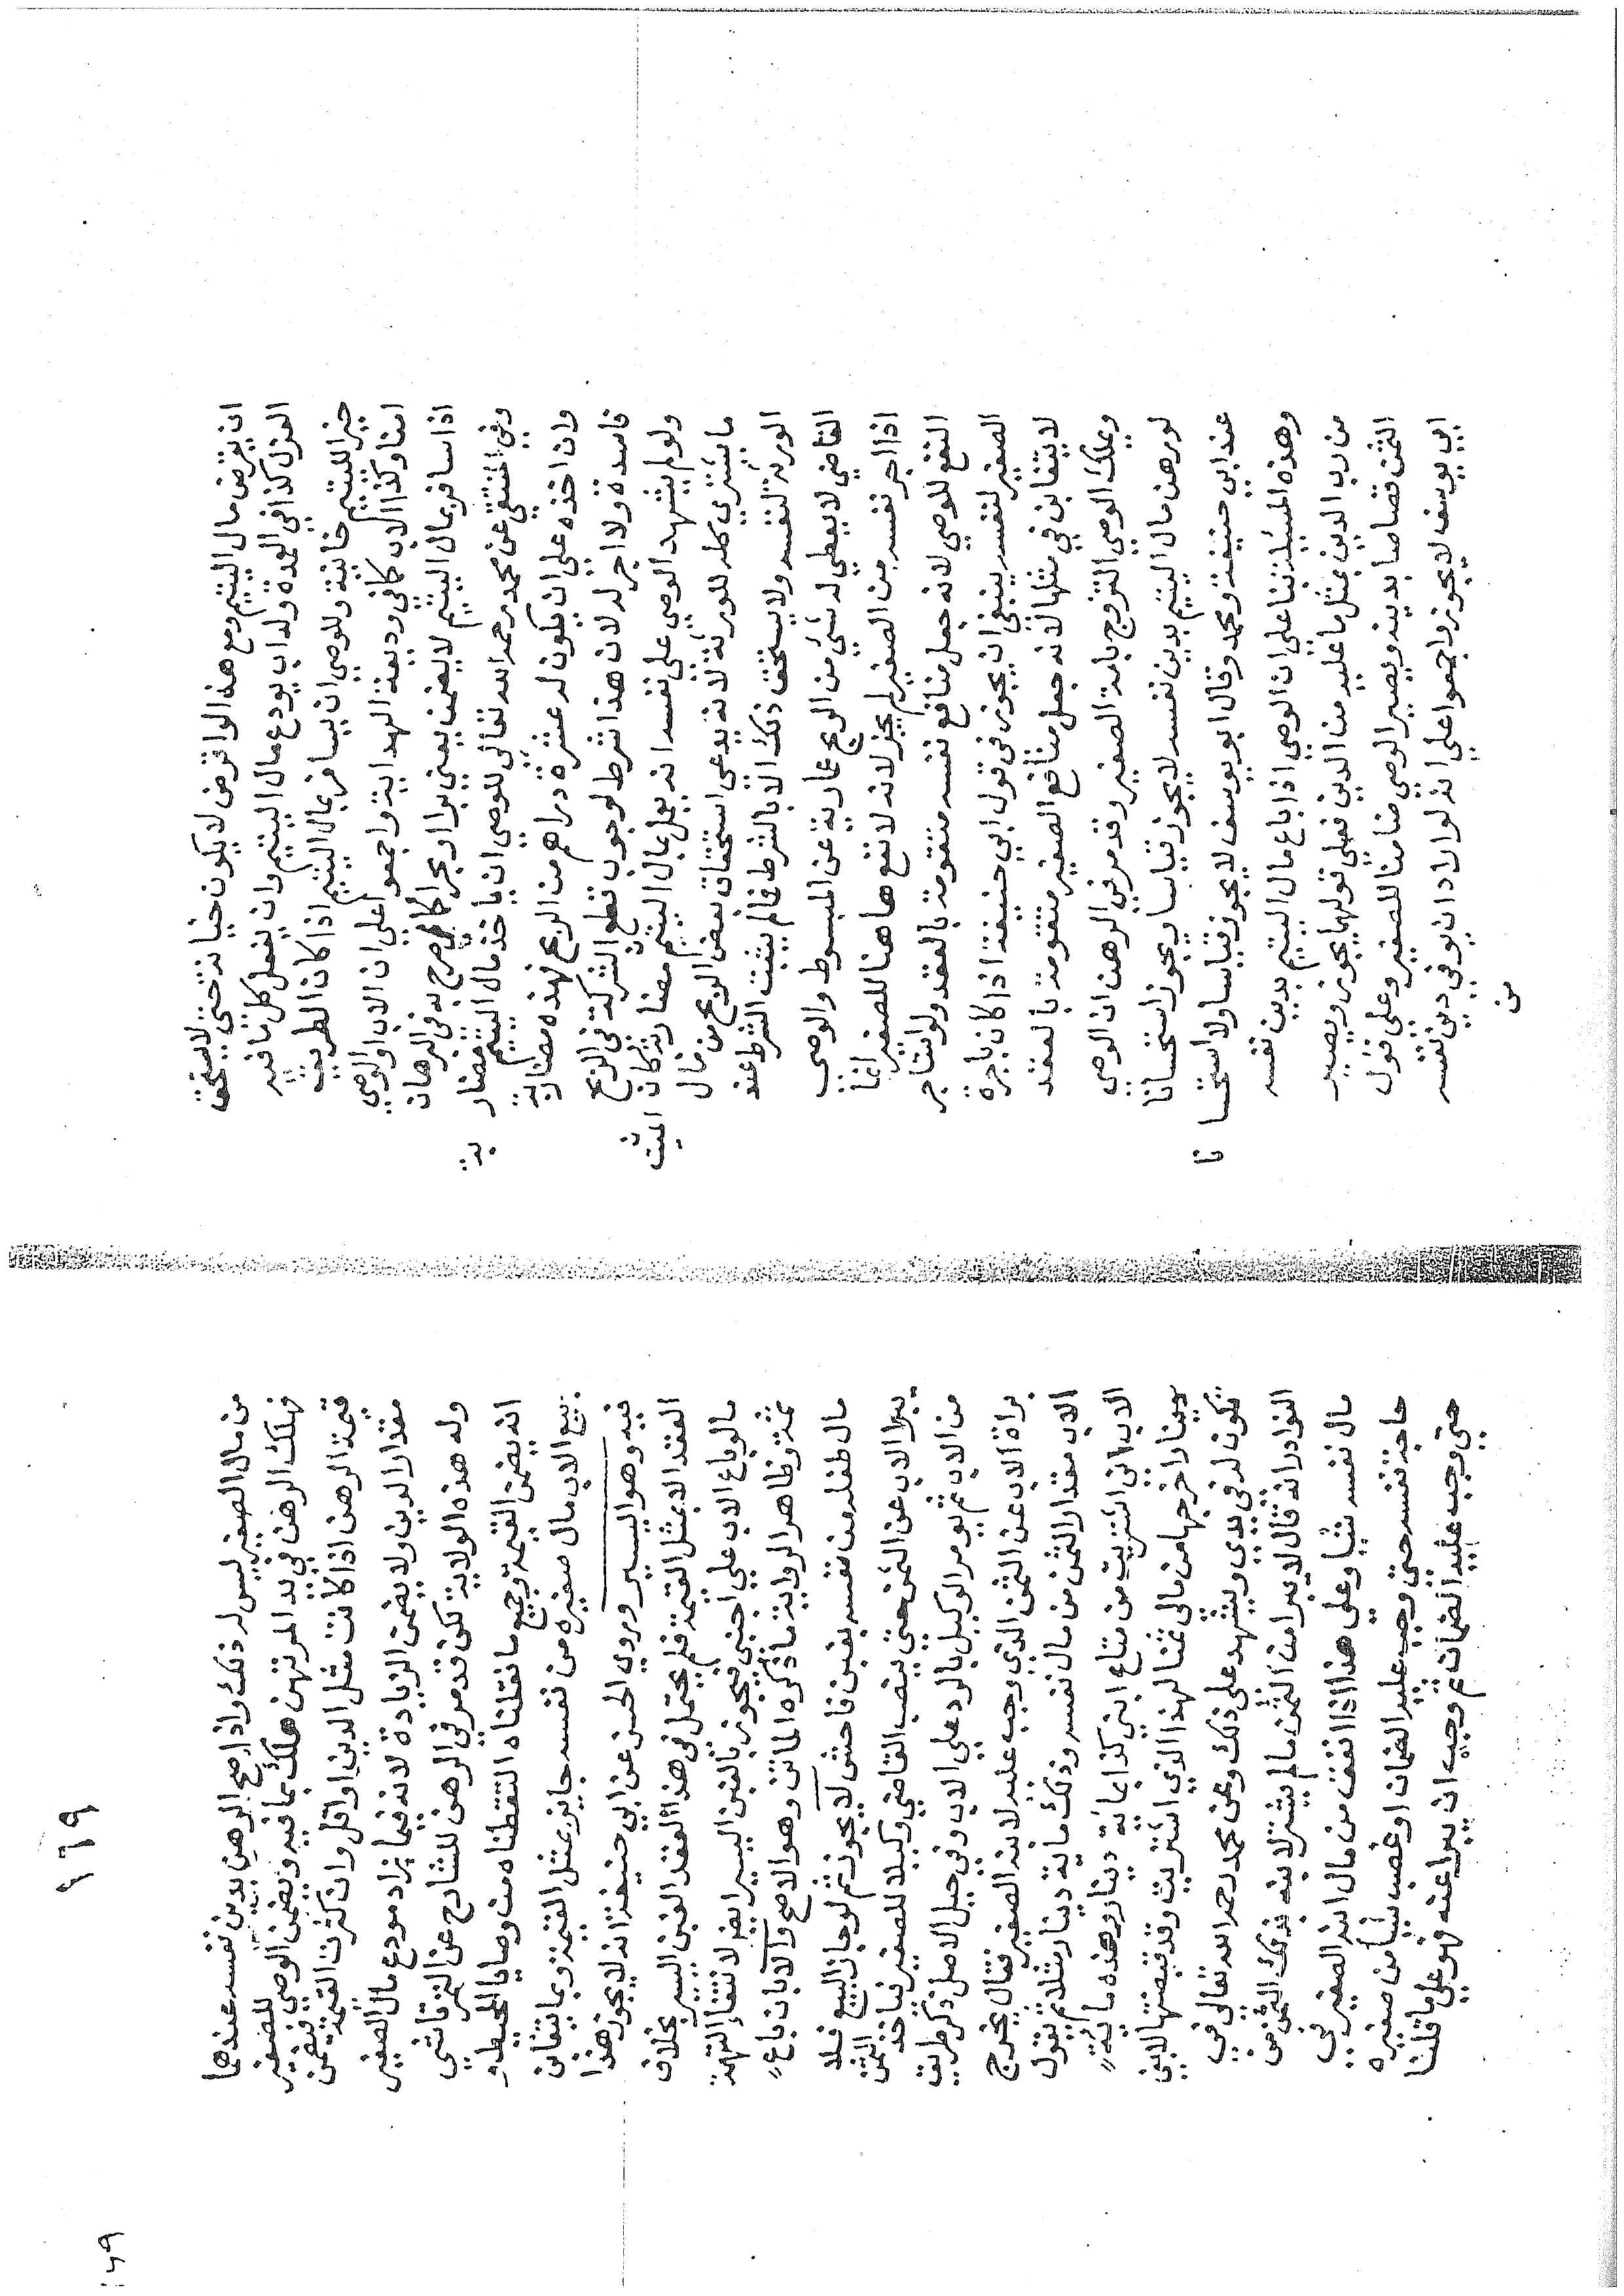 ان يقرض مال اليتيم ومع هذا لو اقرض لا يكون خيانة حتى لا يستحق
العزل كذا في العمدة وله اب يودع مال اليتيم وان يفعل كل ما فيه
خير لليتيم خانية وللوصي ان يسافر بمال اليتيم اذا كان الطريق
امنا وكذا الاب كافي وديعة الهداية واجمعوا على ان الاب او الوصي
اذا سافر بمال اليتيم لا يضمن يعني برا او بحرا كما صرح به في البرهان
وفي المنتقى عن محمد رحمه الله تعالى للوصي ان ياخذ مال اليتيم مضاربة
وان اخذه على ان يكون له عشرة دراهم من الربح فهذه مضاربة
فاسدة ولا اجر له لان هذا شرط لوجوب قطع الشركة في الربح
ولو لم يشهد الوصي على نفسه انه يعمل بمال اليتيم مضاربة كان
ما يشتري كله للورثة لانه يدعي استحقاق بعض الربح من مال الميت
الورثة لنفسه ولا يستحق ذلك الا بالشرط فالم يثبت الشرط عند
القاضي لا يعطي له شئ من الربح عمارية عن المبسوط والوصي
اذا اجر نفسه من الصغير لم يجز لانه لا نفع هاهنا للصغير انما
النفع للوصي لانه جعل منافع نفسه متقومة بالعقد ولو استاجر
الصغير لنفسه ينبغي ان يجوز في قول ابي حنيفة اذا كان باجرة
لا يتغابن في مثلها لانه جعل منافع الصغير متقومة بالعقد
ويملك الوصي التزوج بامة الصغير وقد مر في الرهن ان الوصي
لو رهن مال اليتيم بدين نفسه لا يجوز قياسا ويجوز استحسانا
عند ابي حنيفة ومحمد وقال ابو يوسف لا يجوز قياسا ولا استحسانا
وهذه المسئلة بنا على ان الوصي اذا باع مال اليتيم بدين نفسه
من رب الدين بمثل ما عليه من الدين فعلى قولهما يجوز ويصير
الثمن قصاصا بدينه ويصير الوصي ضامنا للصغير وعلى قول
ابي يوسف لا يجوز واجمعوا على انه لو اراد ان يوفي دين نفسه
من
١٦٩
من مال الصغير ليس له ذلك واذا صح الرهن بدين نفسه عندهما
فهلك الرهن في يد المرتهن هلك بما فيه ويضمن الوصي للصغير
قيمة الرهن اذا كانت مثل الدين او اقل وان كثرت القيمة فيضمن
مقدار الدين ولا يضمن الزيادة لانه فيما زاد مودع مال الصغير
وله هذه الولاية لكن قد مر في الرهن للشارح عن التمرتاشي
انه يضمن القيمة وجميع ما نقلناه التقطناه من وصايا المحيط و
بيع الاب مال صغيره من نفسه جايز بمثل القيمة وبما يتغابن
فيه وهو اليسير وروي الحسن عن ابي حنيفة انه لا يجوز هذا
العقد الا بمثل القيمة فلم يحتمل في هذا العقد الغبن اليسير بخلاف
ما لو باع الاب على اجنبي فيجوز بالغبن اليسير ايضا لانتفاء التهمة
ثمة وظاهر الرواية ما ذكره الماتن وهو الاصح والا بان باع
مال طفله من نفسه بغبن فاحش لا يجوز ثم لو جاز البيع فلا
يبرا الاب عن الثمن حتى ينصب القاضي وكيلا للصغير فياخذ الثمن
من الاب ثم يومر الوكيل بالرد على الاب وفي حيل الاصل ذكر طريق
براة الاب عن الثمن الذي وجب عليه لابنه الصغير فقال يخرج
الاب مقدار الثمن من مال نفسه وذلك ماية دينار مثلا ثم يقول
الاب اني اشتريت من متاع ابني كذا بمائة دينار وهذه مائة
دينار اخرجها من مالي ثمنا لهذا الذي اشتريت وقد قبضتها لابني
تكون له في يدي ويشهد على ذلك وعن محمد رحمه الله تعالى في
النوادر انه قال لا يبرا من الثمن ما لم يشتر لابنه بذلك الثمن من
مال نفسه شيأ وعلى هذا اذا انفق من مال ابنه الصغير في
حاجة نفسه حتى وجب عليه الضمان او غصب شيأ من صغيره
حتى وجب عليه الضمان ثم وجب ان يبرا عنه فهو على ما قلنا
١٦٩